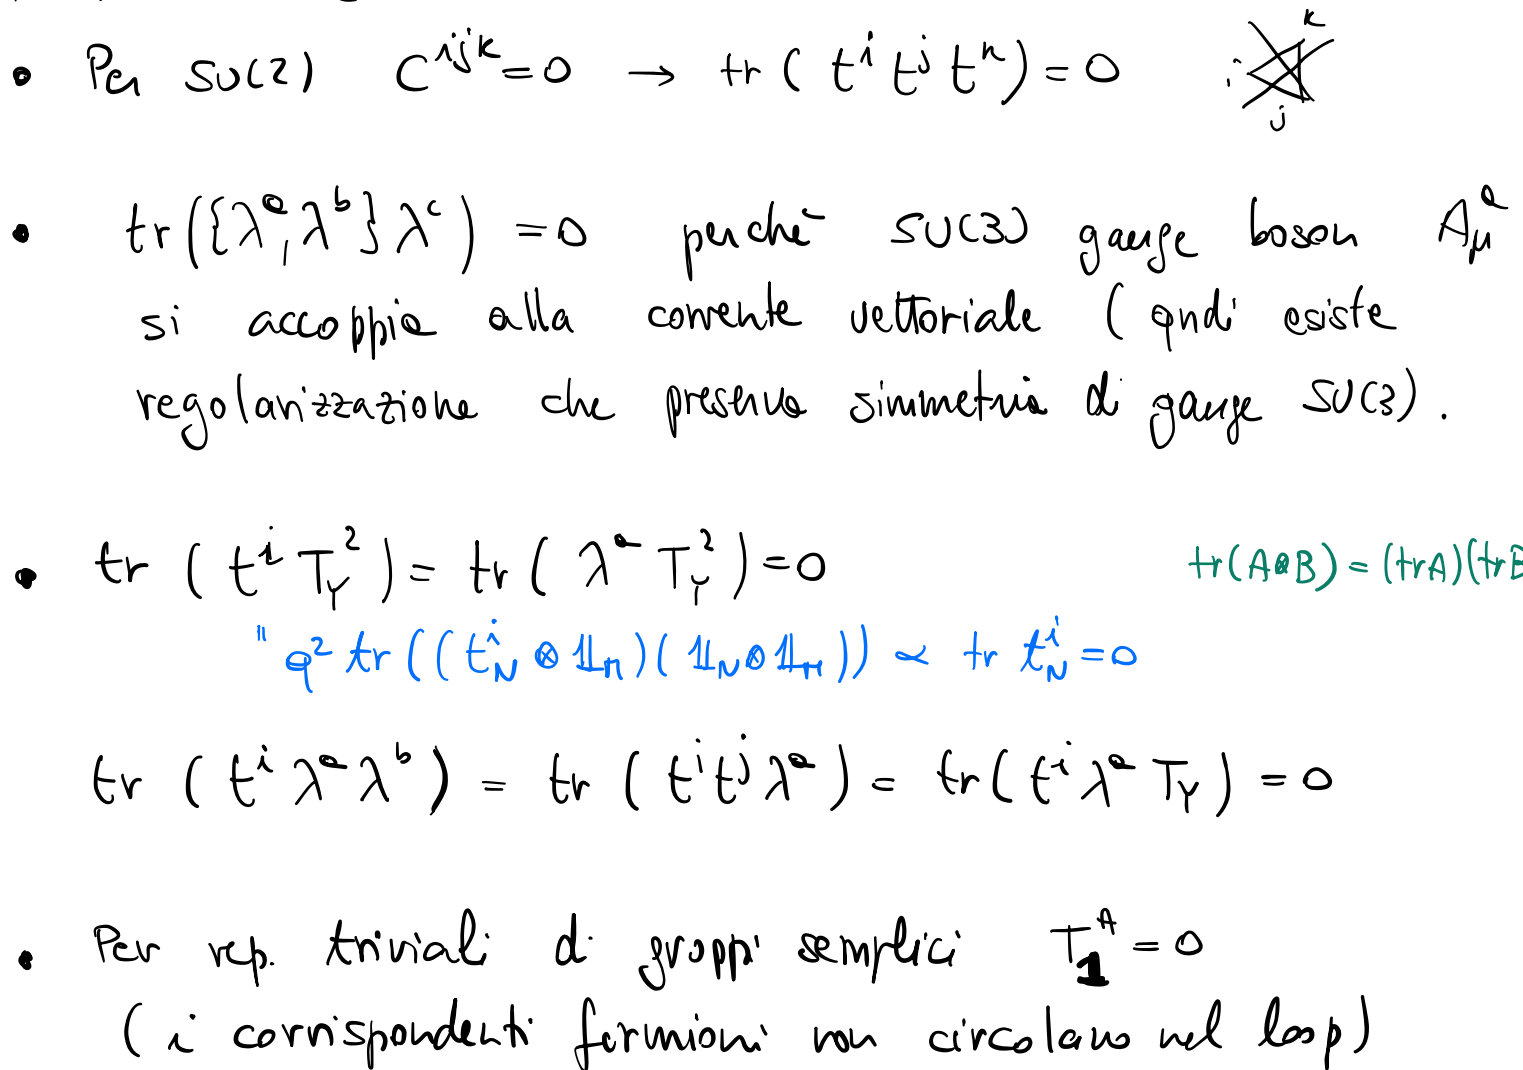 • Per SU(2) C^{ijk}=0 → tr ( t^i t^j t^k ) = 0
i j k
• tr({λ^a, λ^b} λ^c) = 0 perché SU(3) gauge boson A_μ^a
si accoppia alla corrente vettoriale ( qndi esiste
regolarizzazione che preserva simmetria di gauge SU(3) .
• tr ( t^i T_Y^2 ) = tr ( λ^a T_Y^2 ) = 0 tr(A⊗B) = (trA)(trB
" q^2 tr ((t_N^i ⊗ 𝟙_M)( 𝟙_N ⊗ 𝟙_M )) ∝ tr t_N^i = 0
tr ( t^i λ^a λ^b ) = tr ( t^i t^j λ^a ) = tr ( t^i λ^a T_Y ) = 0
• Per rep. triviali di gruppi semplici T_1^A = 0
( i corrispondenti fermioni non circolano nel loop )